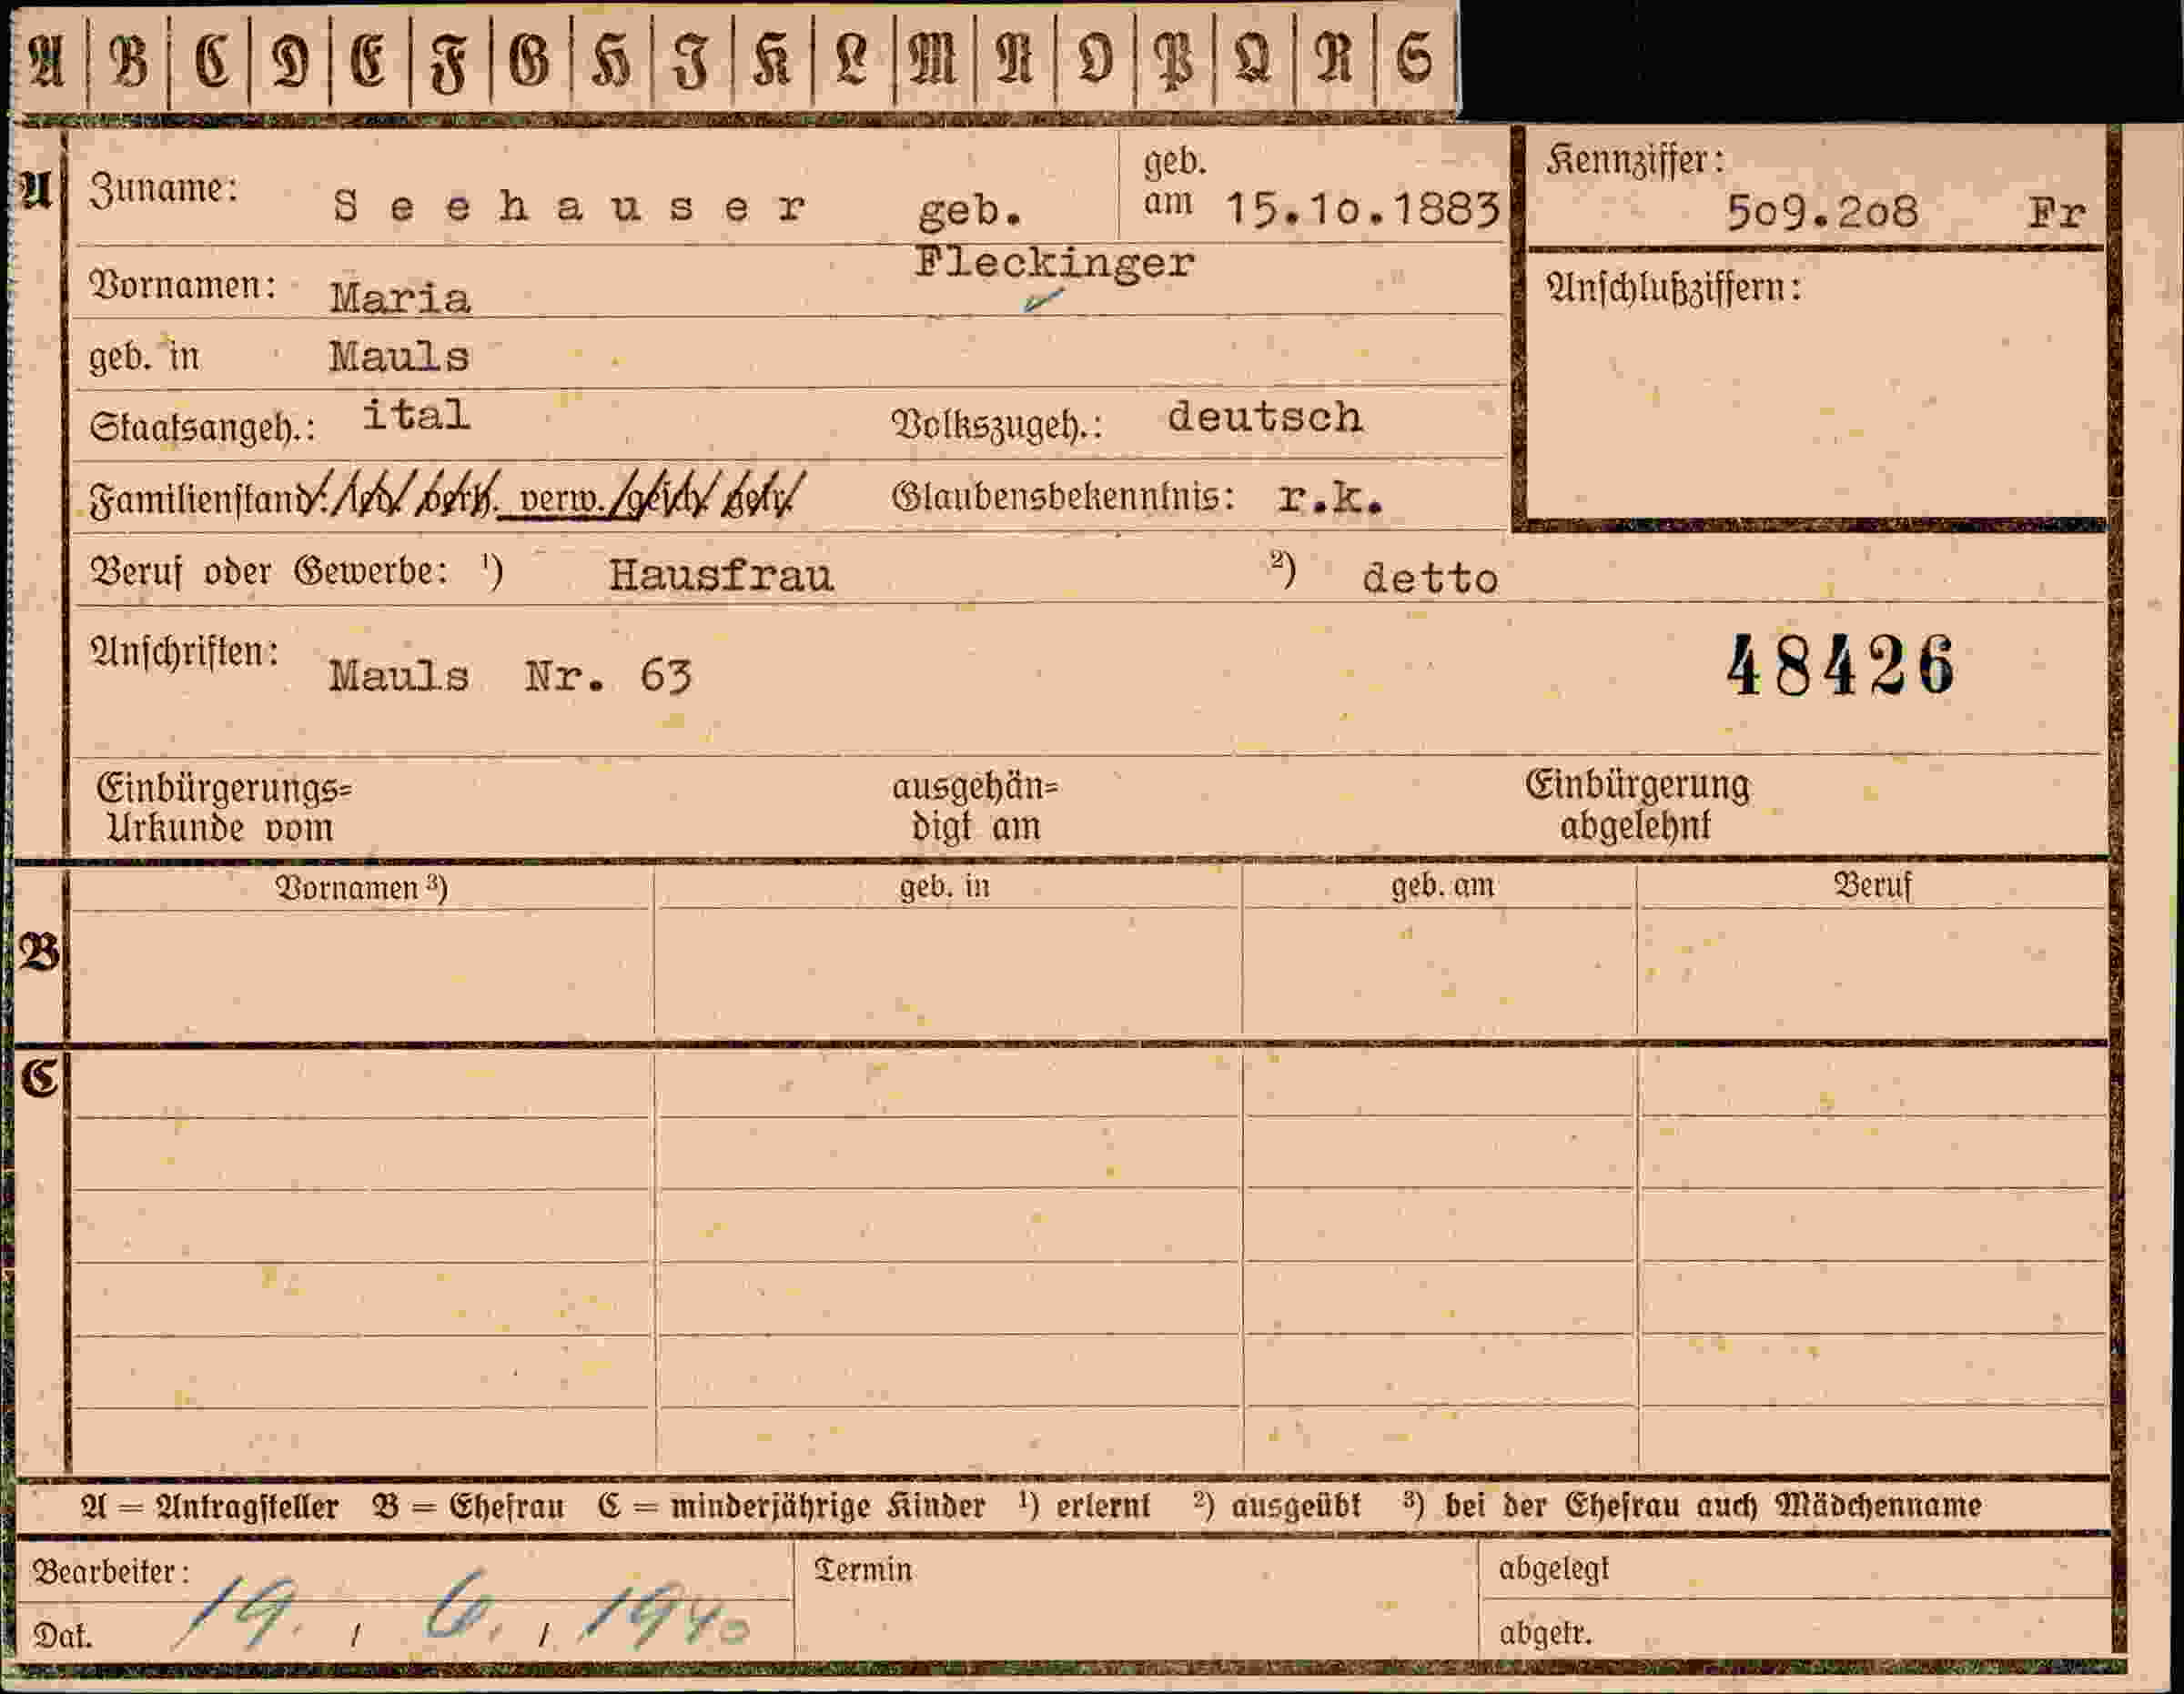 A B C D E F G H J K L M N O P Q R S
A Zuname: Seehauser geb. geb. am 15.10.1883 Kennziffer: 509.208 Fr
Fleckinger
Vornamen: Maria Anschlußziffern:
geb. in Mauls
Staatsangeh.: ital Volkszugeh.: deutsch
Familienstand: led. verh. verw. gesch. getr. Glaubensbekenntnis: r.k.
Beruf oder Gewerbe: ¹) Hausfrau ²) detto
Anschriften: Mauls Nr. 63 48426
Einbürgerungs= ausgehän= Einbürgerung
Urkunde vom digt am abgelehnt
Vornamen ³) geb. in geb. am Beruf
B
C
A = Antragsteller B = Ehefrau C = minderjährige Kinder ¹) erlernt ²) ausgeübt ³) bei der Ehefrau auch Mädchenname
Bearbeiter: Termin abgelegt
Dat. 19. / 6. / 1940 abgetr.